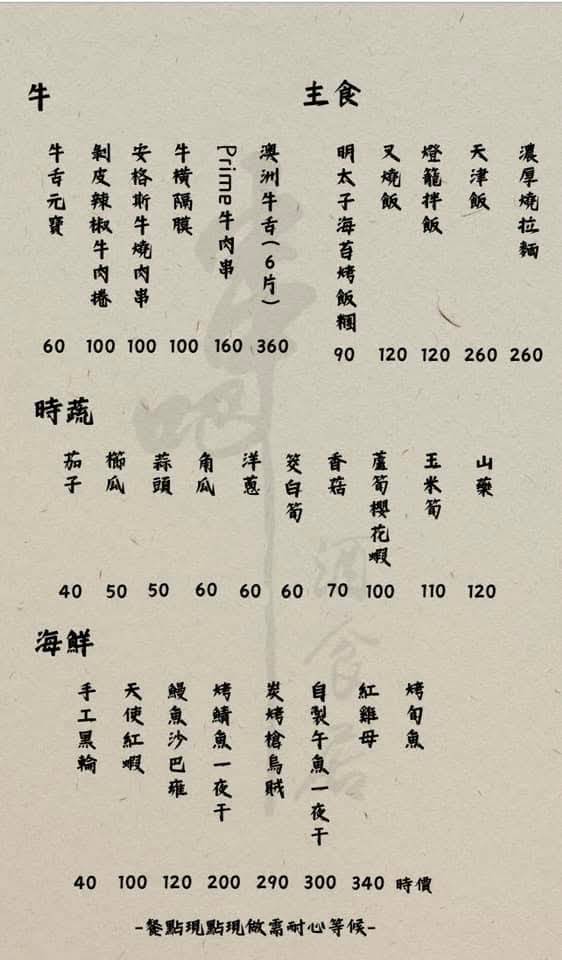 牛
牛舌元寶
剝皮辣椒牛肉捲
安格斯牛燒肉串
牛橫隔膜
Prime牛肉串
澳洲牛舌(6片)
60 100 100 100 160 360
主食
明太子海苔烤飯糰
叉燒飯
燈籠拌飯
天津飯
濃厚燒拉麵
90 120 120 260 260
時蔬
茄子
櫛瓜
蒜頭
角瓜
洋蔥
筊白筍
香菇
蘆筍櫻花蝦
玉米筍
山藥
40 50 50 60 60 60 70 100 110 120
海鮮
手工黑輪
天使紅蝦
鰻魚沙巴雍
烤鯖魚一夜干
炭烤槍烏賊
自製午魚一夜干
紅雞母
烤旬魚
40 100 120 200 290 300 340 時價
-餐點現點現做需耐心等候-
串吧
酒食居